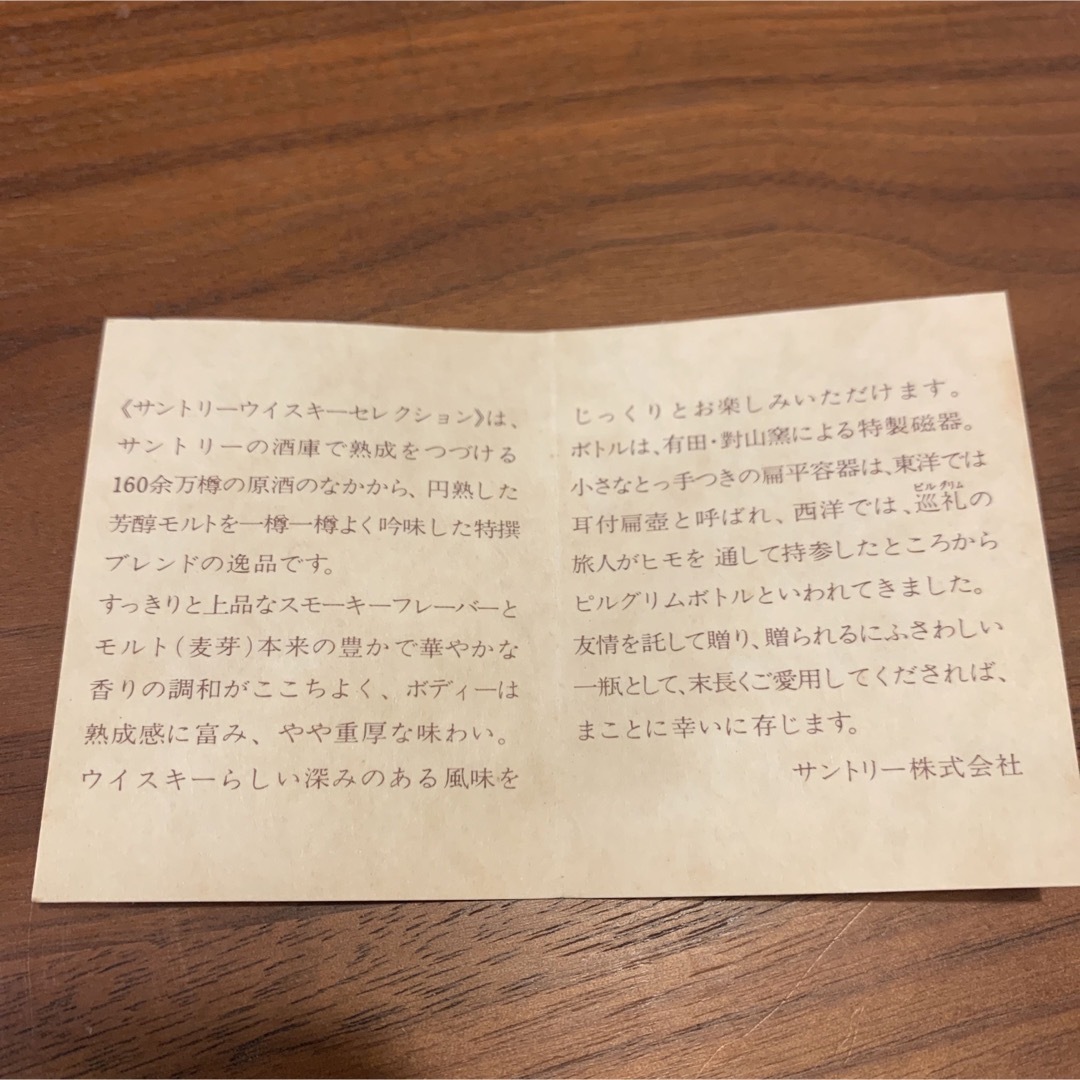 《サントリーウイスキーセレクション》は、
サントリーの酒庫で熟成をつづける
160余万樽の原酒のなかから、円熟した
芳醇モルトを一樽一樽よく吟味した特撰
ブレンドの逸品です。
すっきりと上品なスモーキーフレーバーと
モルト(麦芽)本来の豊かで華やかな
香りの調和がここちよく、ボディーは
熟成感に富み、やや重厚な味わい。
ウイスキーらしい深みのある風味を
じっくりとお楽しみいただけます。
ボトルは、有田・對山窯による特製磁器。
小さなとっ手つきの扁平容器は、東洋では
ピルグリム
耳付扁壺と呼ばれ、西洋では、巡礼の
旅人がヒモを通して持参したところから
ピルグリムボトルといわれてきました。
友情を託して贈り、贈られるにふさわしい
一瓶として、末長くご愛用してくだされば、
まことに幸いに存じます。
サントリー株式会社